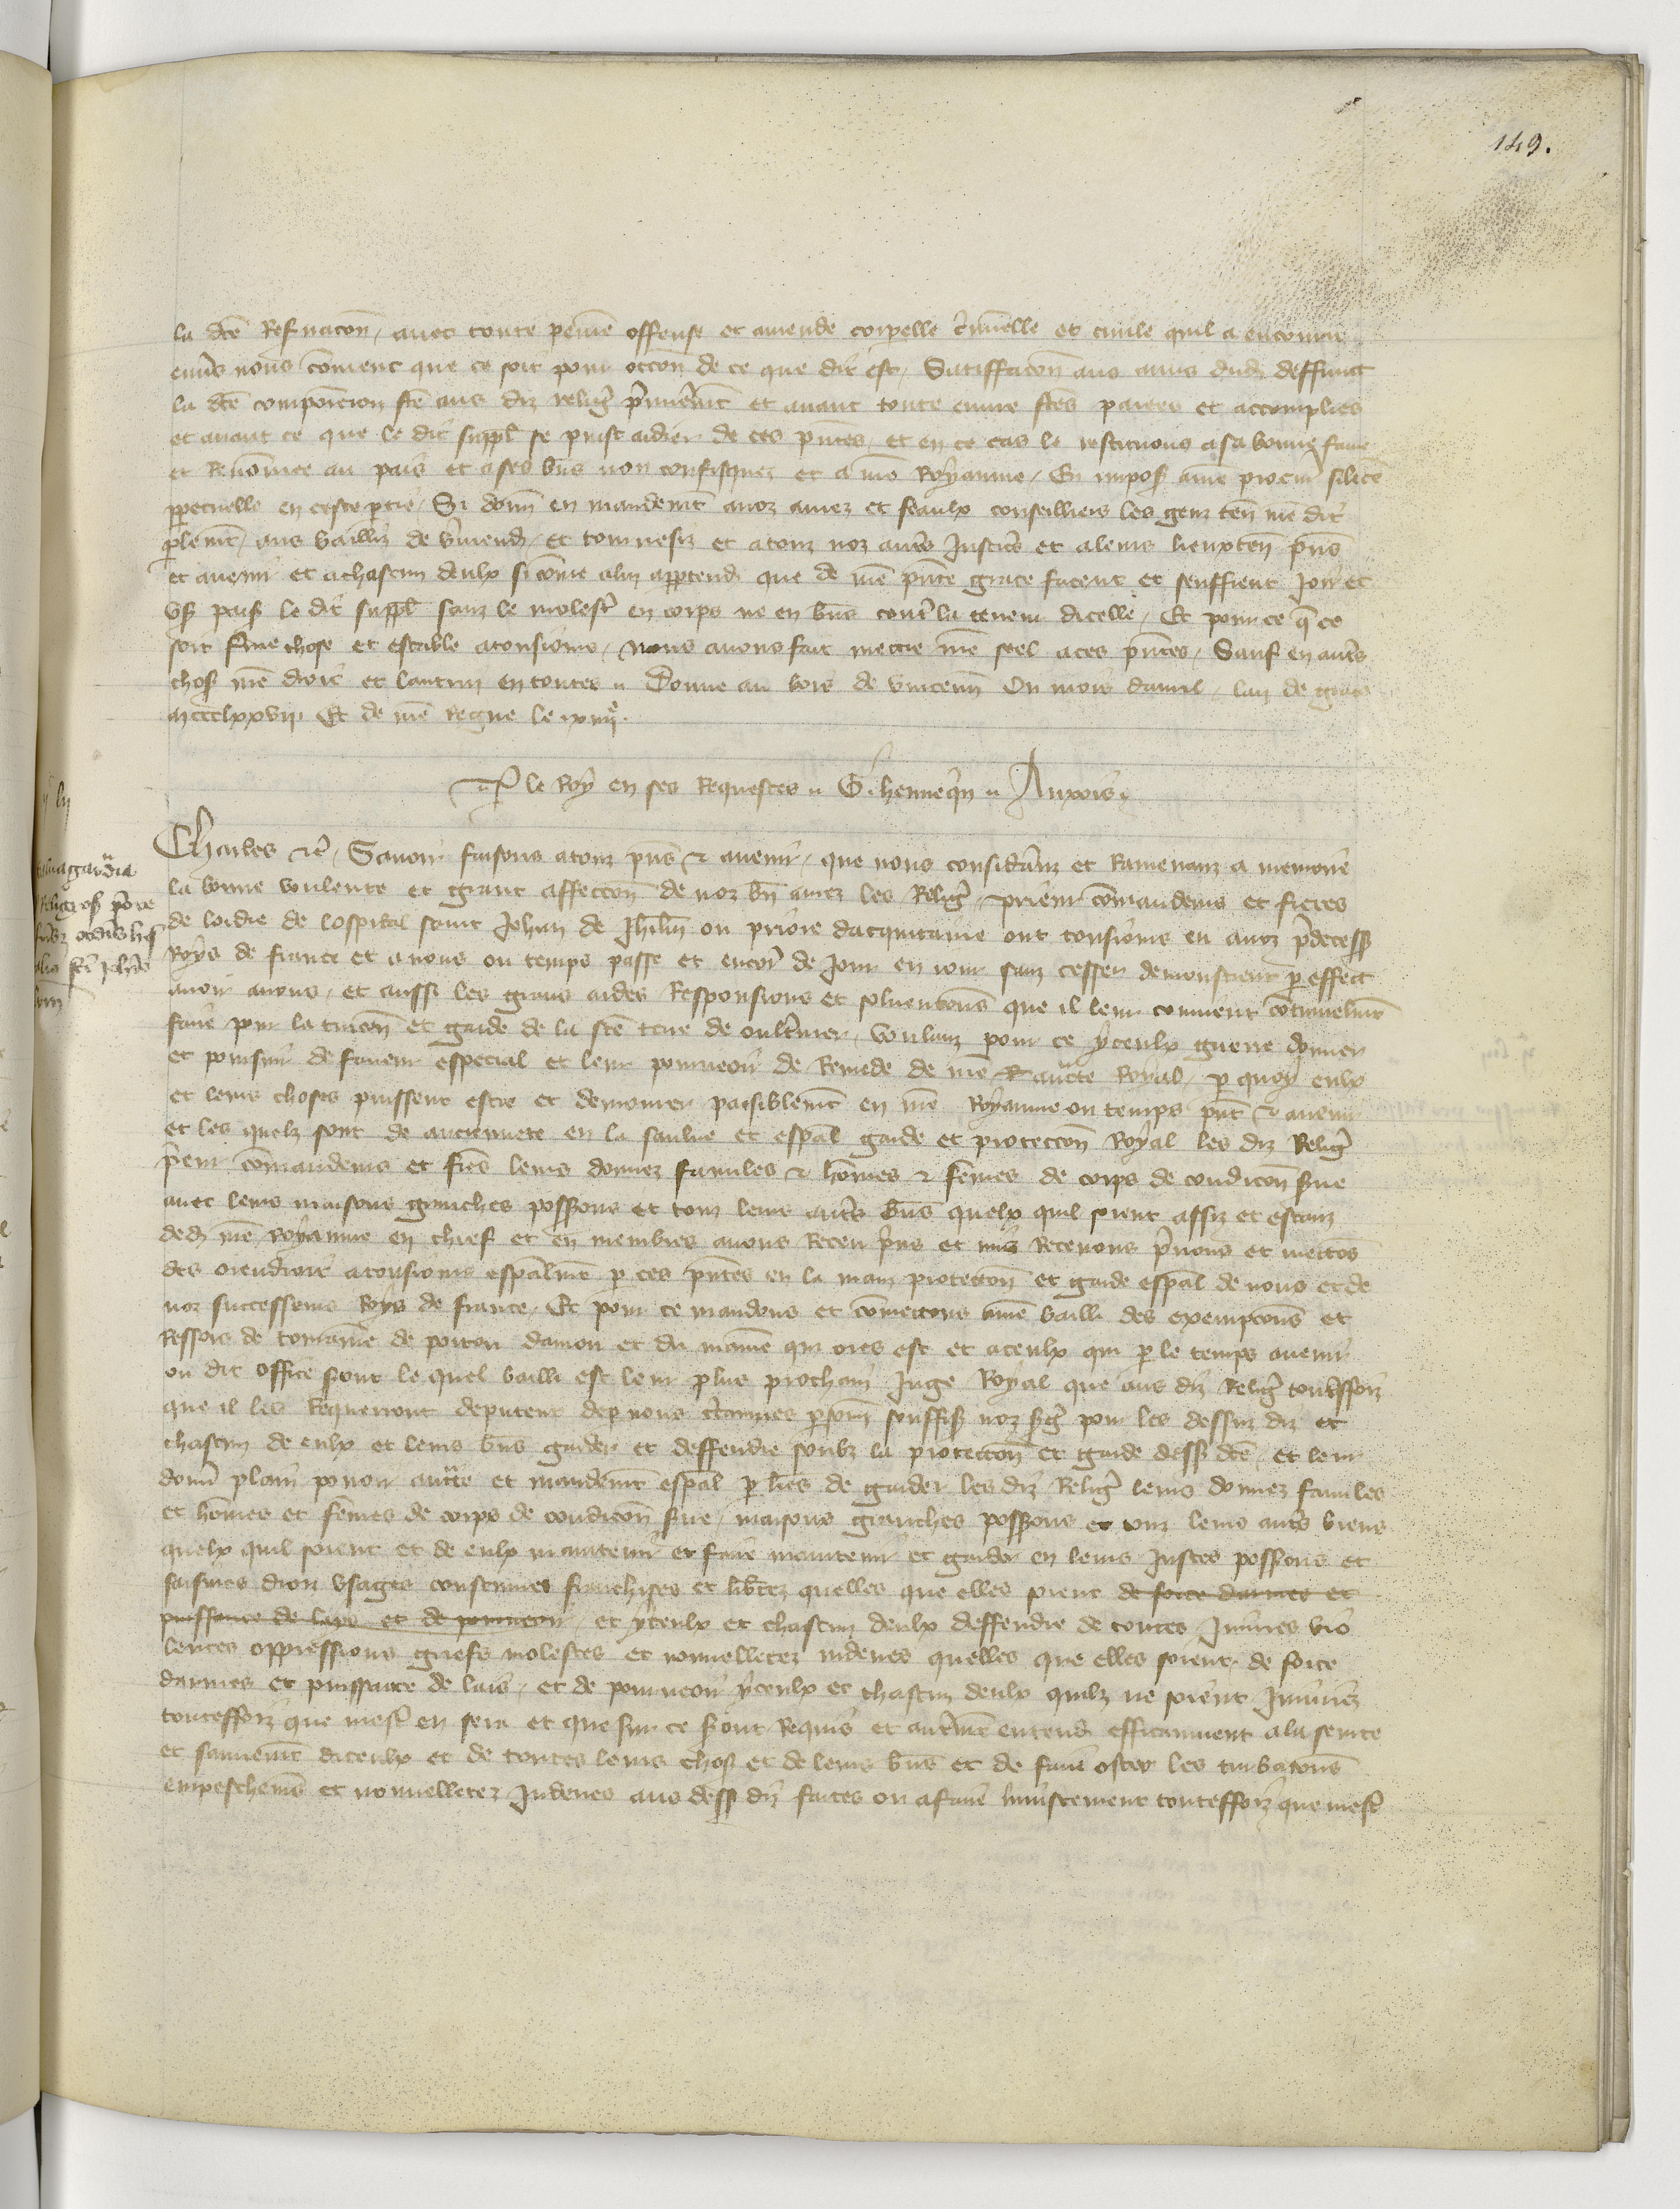 149.
la dce Refnacon, avec toute peine offense et amende corpelle criminelle et civile quil a encourue
envs nous coment que ce soit pour occon de ce que dit est, Satiffacon aus amis dud deffunct
la dce composicion fce aus diz relig premierement et avant toute euvre fces paiees et accomplies
et avant ce que le dit suppl se puist aidier de ces pntes, et en ce cas le restituons a sa bonne fame
et Renomee au pais et a ses biens non confisquez et a nre Royaume, En impos a nre procur silece
perpetuelle en ceste partie, Si donn en mandement a noz amez et feaulx conseilliers les genz ten nre dit
plement, aus bailliz de Vermend, et tournesiz et a touz noz autres Justic et a leurs lieuxten pns
et avenir et a chascun deulx si come a lui appartend que de nre pnte grace facent et seuffrent Joir et
us paisi le dit suppl sanz le molest en corps ne en biens contre la teneur dicelle, Et pour ce que ce
soit ferme chose et estable a tousiours, nous avons fait mettre nre seel a ces pntes, Sauf en autres
chos nre droit et lautruy en toutes. Donne au bois de Vincenn Ou mois davril, lan de grace
mccclxxvii Et de nre Regne le xiiije.
P le Roy en ses Requestes. G. hennequin. Auxois.
Charles etc, Savoir faisons a touz pns et avenir, que nous considerans et Ramenanz a memoire
la bonne voulente et grant affeccon de noz bn amez les Relig, prieur comandeurs et freres
de lordre de lospital saint Jehan de Jhrlm ou priore dacquitaine ont tousiours eu a noz predecess
Roys de france et a nous ou temps passe et encor de jour en jour sanz cesser demonstrent p effect
avoir a nous, et aussi les grans aides Responsions et solucions que il leur convient continuelment
faire pour la tuicon et garde de la sce terre de oultremer, voulanz pour ce yceulx guerre donner
et poursuir de faveur especial et leur pourveoir de Remede de nre aucte Royal, p quoy eulx
et leurs choses puissent estre et demourer paisiblement en nre Royaume ou temps pnt et avenir
et les quelz sont de anciennete en la sauve et especial garde et proteccon Royal les diz Relig
prieur comandeurs et freres leurs donnez familes et homes et femes de corps de condicon serve
avec leurs maisons granches possessions et touz leurs autres biens quelx quil soient assiz et estanz
dedens nre Royaume en chief et en membres avons Receu prins et mis Recevons prenons et mettons
des orendroit a tousiours especialment p ces pntes en la main proteccon et garde especial de nous et de
noz successeurs Roys de france. Et pour ce mandons et comettons a nre bailli des exempcions et
Ressors de touraine de poitou danjou et du maine qui ores est et a ceulx qui p le temps avenir
ou dit office seront le quel bailli est leur plus prochain Juge Royal que aus diz Relig touteffoiz
que il les Requerront deputent de p nous certaines personn souffis noz serg pour les dessuz diz et
chascun de eulx et leurs biens garder et deffendre soubz la proteccon et garde dess dce, et leur
donn plain povoir aucte et mandement especial p lres de garder les diz Relig leurs donnez familes
et homes et femes de corps de condicon serve, maisons granches possessions et touz leurs autres biens
quelx quil soient et de eulx maintenir et faire maintenir et garder en leurs Justes possessions et
saisines droiz usages coustumes franchises et libertez quelles que elles soient de force darmes et
puissance de lays et de pourveoir, et yceulx et chascun deulx deffendre de toutes Injures vio
lences oppressions griefs molestes et nouvelletez indeues quelles que elles soient de force
darmes et puissance de lais, et de pourveoir yceulx et chascun deulx quilz ne soient Injuriez
touteffoiz que mest en sera et que sur ce seront Requis et autrement entend efficaument a la seurte
et sauvement diceulx et de toutes leurs chos et de leurs biens et de faire oster les turbacions
empeschemens et nouvelletez Indeues aus dess diz faites ou a faire Injustement touteffoiz que mest